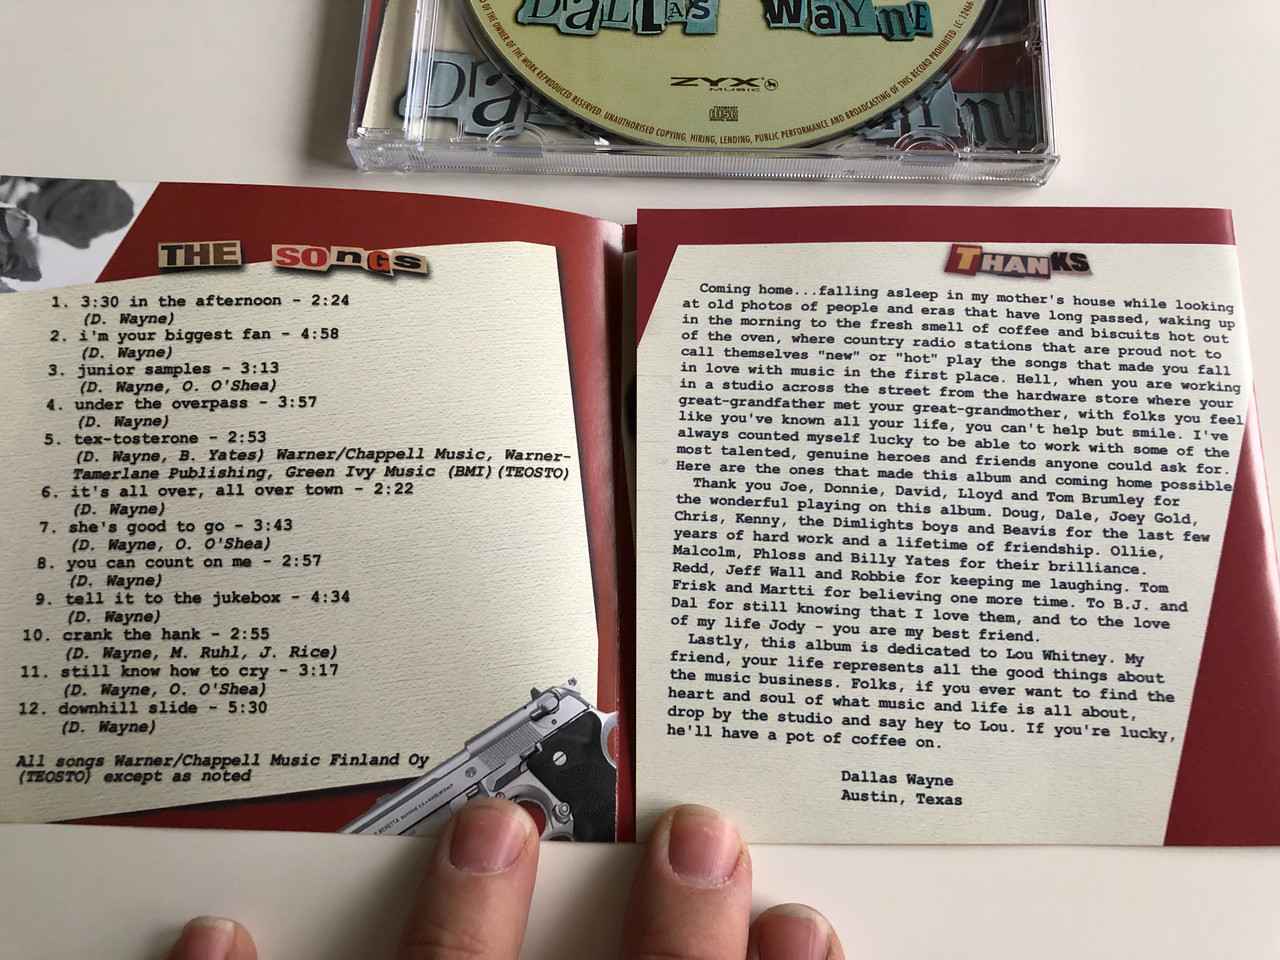 Dallas Wayne
ZYX
MUSIC
OF THE OWNER OF THE WORK REPRODUCED RESERVED. UNAUTHORISED COPYING, HIRING, LENDING, PUBLIC PERFORMANCE AND BROADCASTING OF THIS RECORD PROHIBITED. LC 12466
THE SONGS
1. 3:30 in the afternoon - 2:24
(D. Wayne)
2. i'm your biggest fan - 4:58
(D. Wayne)
3. junior samples - 3:13
(D. Wayne, O. O'Shea)
4. under the overpass - 3:57
(D. Wayne)
5. tex-tosterone - 2:53
(D. Wayne, B. Yates) Warner/Chappell Music, Warner-
Tamerlane Publishing, Green Ivy Music (BMI)(TEOSTO)
6. it's all over, all over town - 2:22
(D. Wayne)
7. she's good to go - 3:43
(D. Wayne, O. O'Shea)
8. you can count on me - 2:57
(D. Wayne)
9. tell it to the jukebox - 4:34
(D. Wayne)
10. crank the hank - 2:55
(D. Wayne, M. Ruhl, J. Rice)
11. still know how to cry - 3:17
(D. Wayne, O. O'Shea)
12. downhill slide - 5:30
(D. Wayne)
All songs Warner/Chappell Music Finland Oy
(TEOSTO) except as noted
THANKS
Coming home...falling asleep in my mother's house while looking
at old photos of people and eras that have long passed, waking up
in the morning to the fresh smell of coffee and biscuits hot out
of the oven, where country radio stations that are proud not to
call themselves "new" or "hot" play the songs that made you fall
in love with music in the first place. Hell, when you are working
in a studio across the street from the hardware store where your
great-grandfather met your great-grandmother, with folks you feel
like you've known all your life, you can't help but smile. I've
always counted myself lucky to be able to work with some of the
most talented, genuine heroes and friends anyone could ask for.
Here are the ones that made this album and coming home possible
Thank you Joe, Donnie, David, Lloyd and Tom Brumley for
the wonderful playing on this album. Doug, Dale, Joey Gold,
Chris, Kenny, the Dimlights boys and Beavis for the last few
years of hard work and a lifetime of friendship. Ollie,
Malcolm, Phloss and Billy Yates for their brilliance.
Redd, Jeff Wall and Robbie for keeping me laughing. Tom
Frisk and Martti for believing one more time. To B.J. and
Dal for still knowing that I love them, and to the love
of my life Jody - you are my best friend.
Lastly, this album is dedicated to Lou Whitney. My
friend, your life represents all the good things about
the music business. Folks, if you ever want to find the
heart and soul of what music and life is all about,
drop by the studio and say hey to Lou. If you're lucky,
he'll have a pot of coffee on.
Dallas Wayne
Austin, Texas